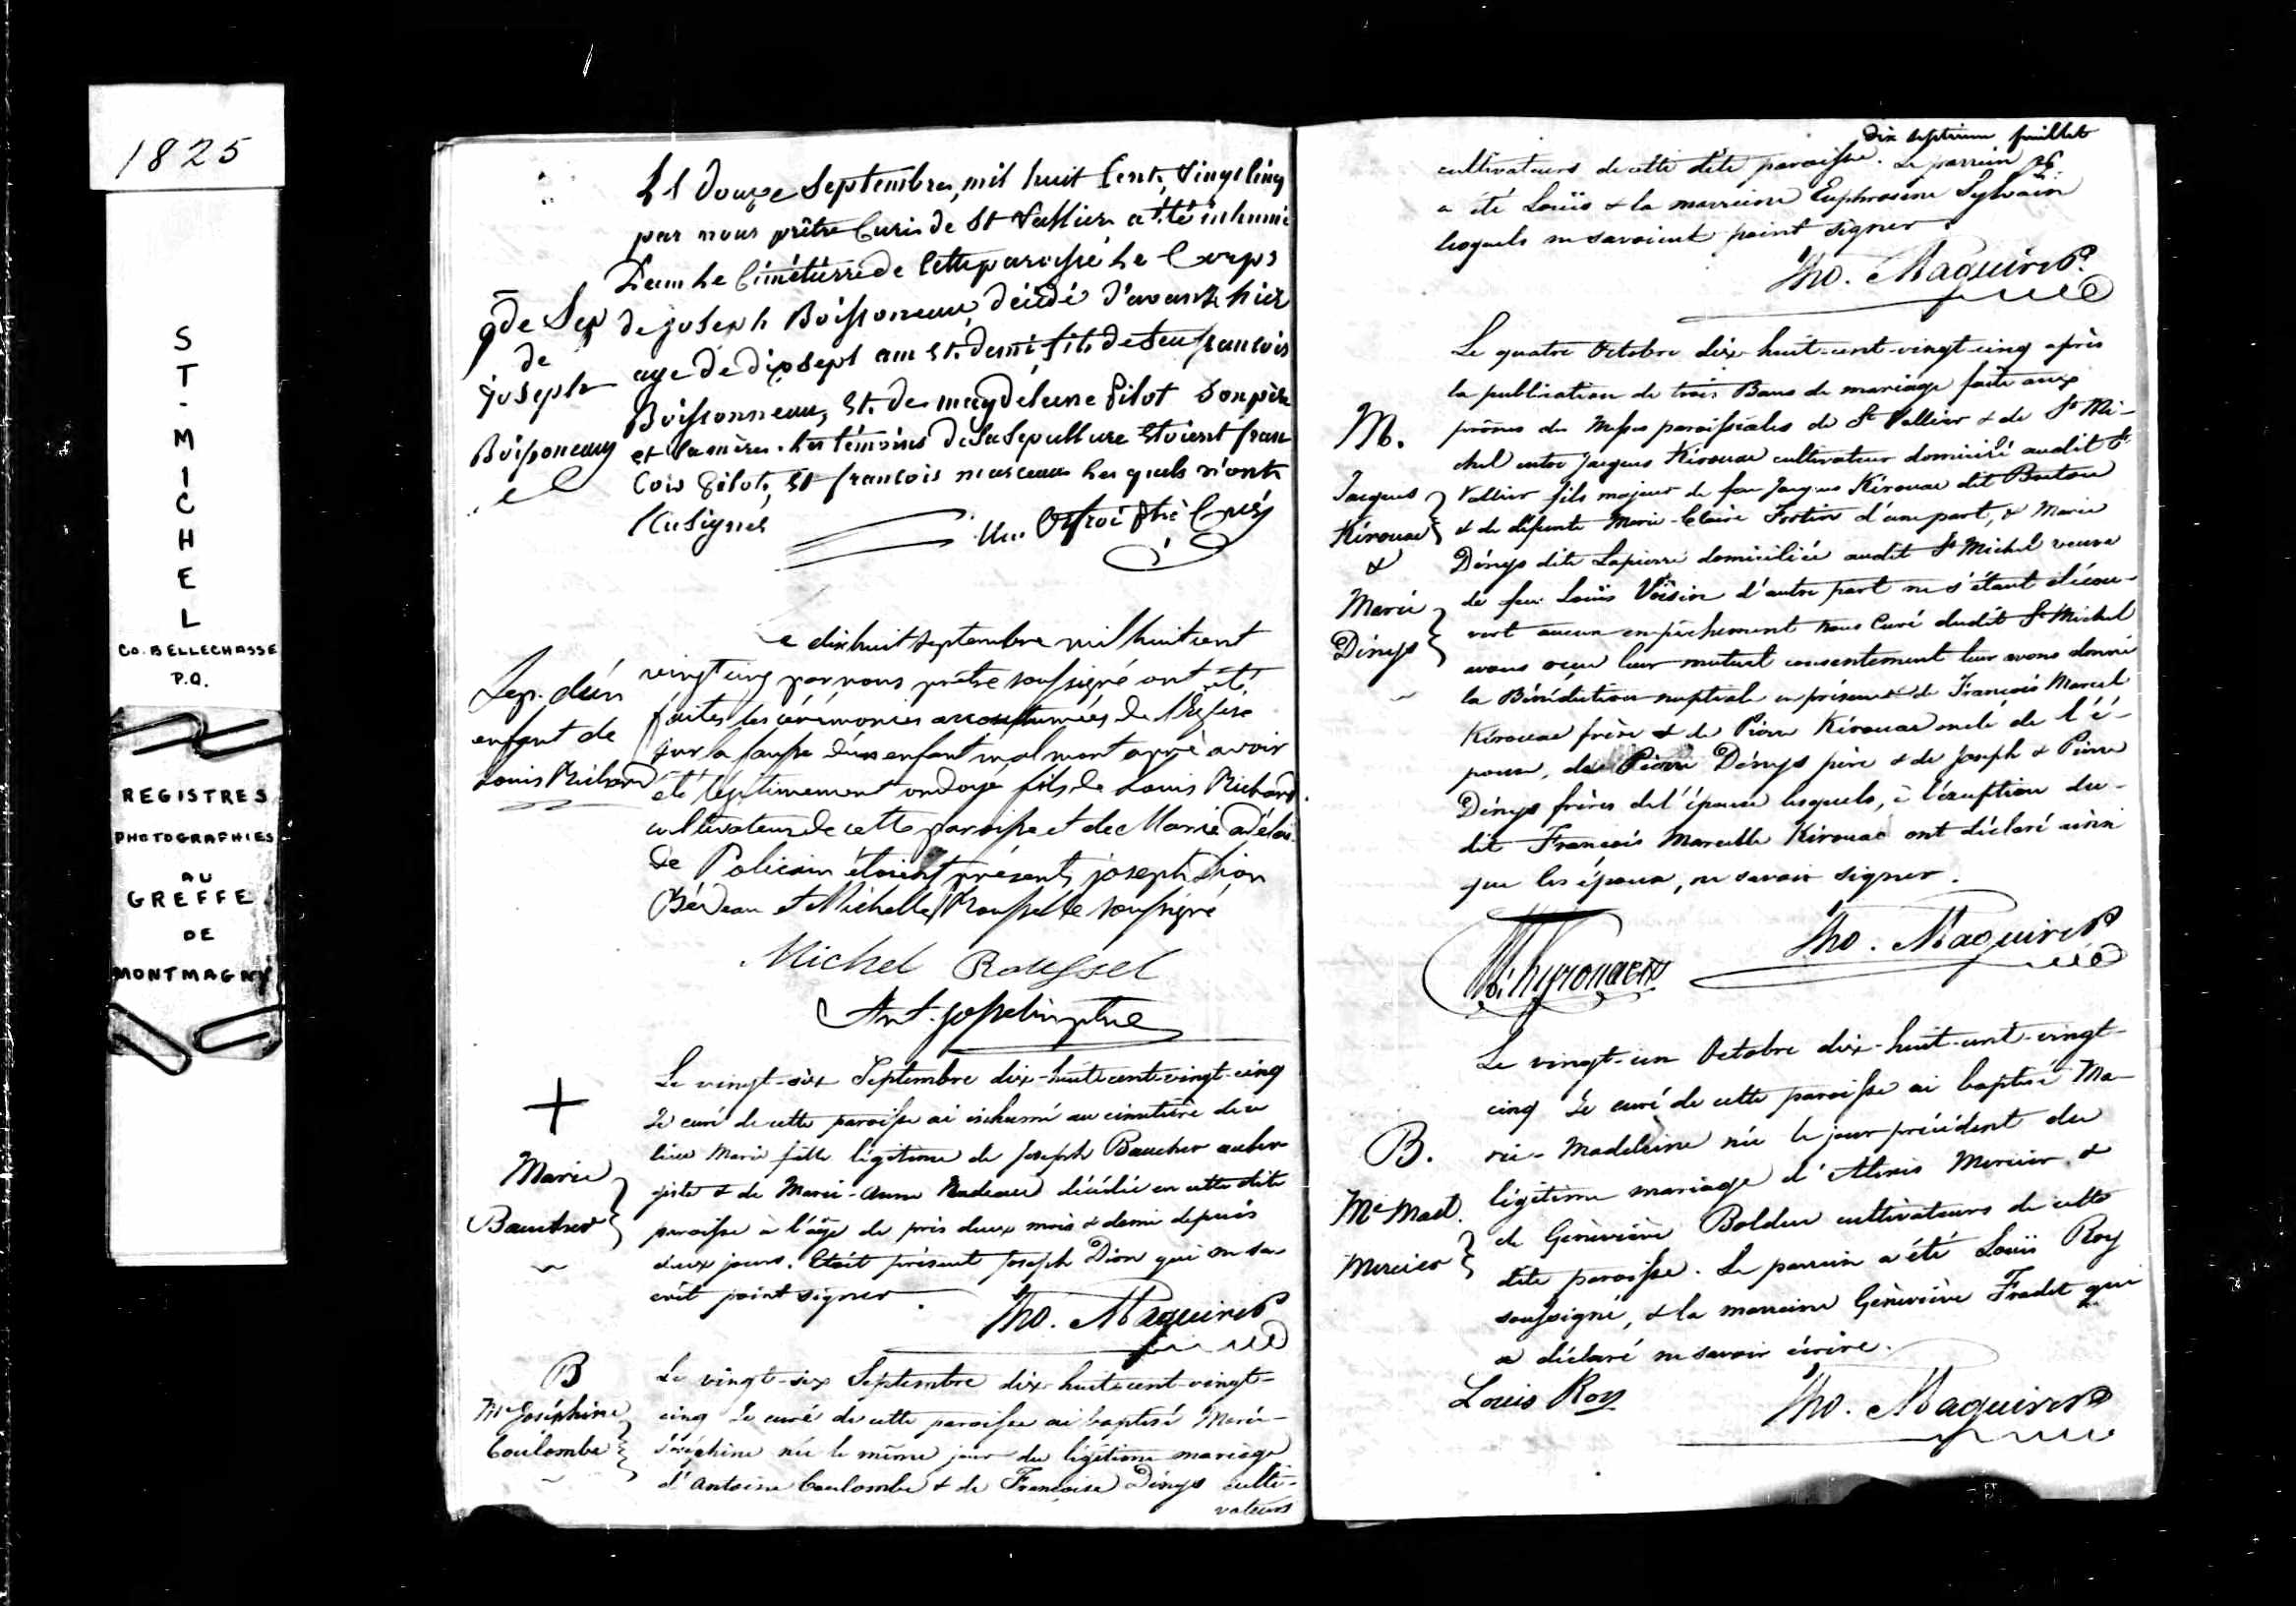 1825
ST-MICHEL
CO. BELLECHASSE
P.Q.
REGISTRES
PHOTOGRAPHIES
AU
GREFFE
DE
MONTMAGNY
Le douze Septembre, mil huit Cent, Vingt Cinq
par nous prêtre Curé de St Vallier a été inhumé
Dans Le Cimétierre de Cette paroisse Le Corps
de joseph Boissoneau, décédé d'avant hier
age de dix sept ans et demi, fils de feu francois
Boissonneau, et de magdeleine Gilot Son père
et Sa mère. Les témoins de Sa Sepulture Etoient fran
Cois Gilot, Et francois marceau Les quels n'ont
Su Signer
ptre Curé
de Sep
de
joseph
Boissoneau
Le dixhuit septembre mil huit cent
vingt cinq par nous prêtre soussigné ont été
faites les cérémonies accoutumées de l'Eglise
sur la fausse d'un enfant mal mort après avoir
été légitimement ondoyé fils de Louis Richard
cultivateur de cette paroisse et de Marie Adélaï-
de Policain étoient présents joseph Dion
Bédeau et Michelle Rousselle soussigné
Michel Roussel
Ant. Gosselin ptre
Sep. d'un
enfant de
Louis Richard
Le vingt-six Septembre dix-huit-cent-vingt-cinq
Je curé de cette paroisse ai inhumé au cimetière de ce
lieu Marie fille légitime de Joseph Baucher auber-
giste & de Marie-Anne Nadeau décédée en cette dite
paroisse à l'âge de près deux mois & demi depuis
deux jours. Etoit présent Joseph Dion qui ne sa-
voit point signer.
Tho. Maguire P
+
Marie
Baucher
Le vingt-six Septembre dix-huit-cent-vingt-
cinq Je curé de cette paroisse ai baptisé Marie-
Joséphine née le même jour du légitime mariage
d'Antoine Coulombe & de Françoise Dénys culti-
vateurs
B
Me Joséphine
Coulombe
Dix septième feuillet
cultivateurs de cette dite paroisse. Le parrain
a été Louïs & la marraine Euphrosine Sylvain
lesquels ne savoient point signer.
Tho. Maguire P.
Le quatre Octobre dix-huit-cent-vingt-cinq après
la publication de trois Bans de mariage faite aux
prônes des Messes paroissiales de St Vallier & de St Mi-
chel entre Jacques Kérouac cultivateur domicilié audit St
Vallier fils majeur de feu Jacques Kérouac dit Breton
& de défunte Marie-Claire Fortin d'une part, & Marie
Dénys dite Lapierre domiciliée audit St Michel veuve
de feu Louïs Voisin d'autre part ne s'étant décou-
vert aucun empêchement nous Curé dudit St Michel
avons reçu leur mutuel consentement leur avons donné
la Bénédiction nuptiale en présence de François Marcel
Kérouac frère & de Pierre Kérouac oncle de l'é-
poux, de Pierre Dénys père & de Joseph & Pierre
Dénys frères de l'épouse lesquels, à l'exception du-
dit François Marcelle Kérouac ont déclaré ainsi
que les époux, ne savoir signer.
Tho. Maguire P
M.
Jacques
Kérouac
&
Marie
Dénys
Le vingt-un Octobre dix-huit-cent-vingt-
cinq Je curé de cette paroisse ai baptisé Ma-
rie-Madeleine née le jour précédent du
légitime mariage d'Alexis Mercier &
de Gèneviève Bolduc cultivateurs de cette
dite paroisse. Le parrain a été Louïs Roy
soussigné, & la marraine Gèneviève Fradet qui
a déclaré ne savoir écrire.
Louis Roy
Tho. Maguire P
B.
Me Mad.
Mercier